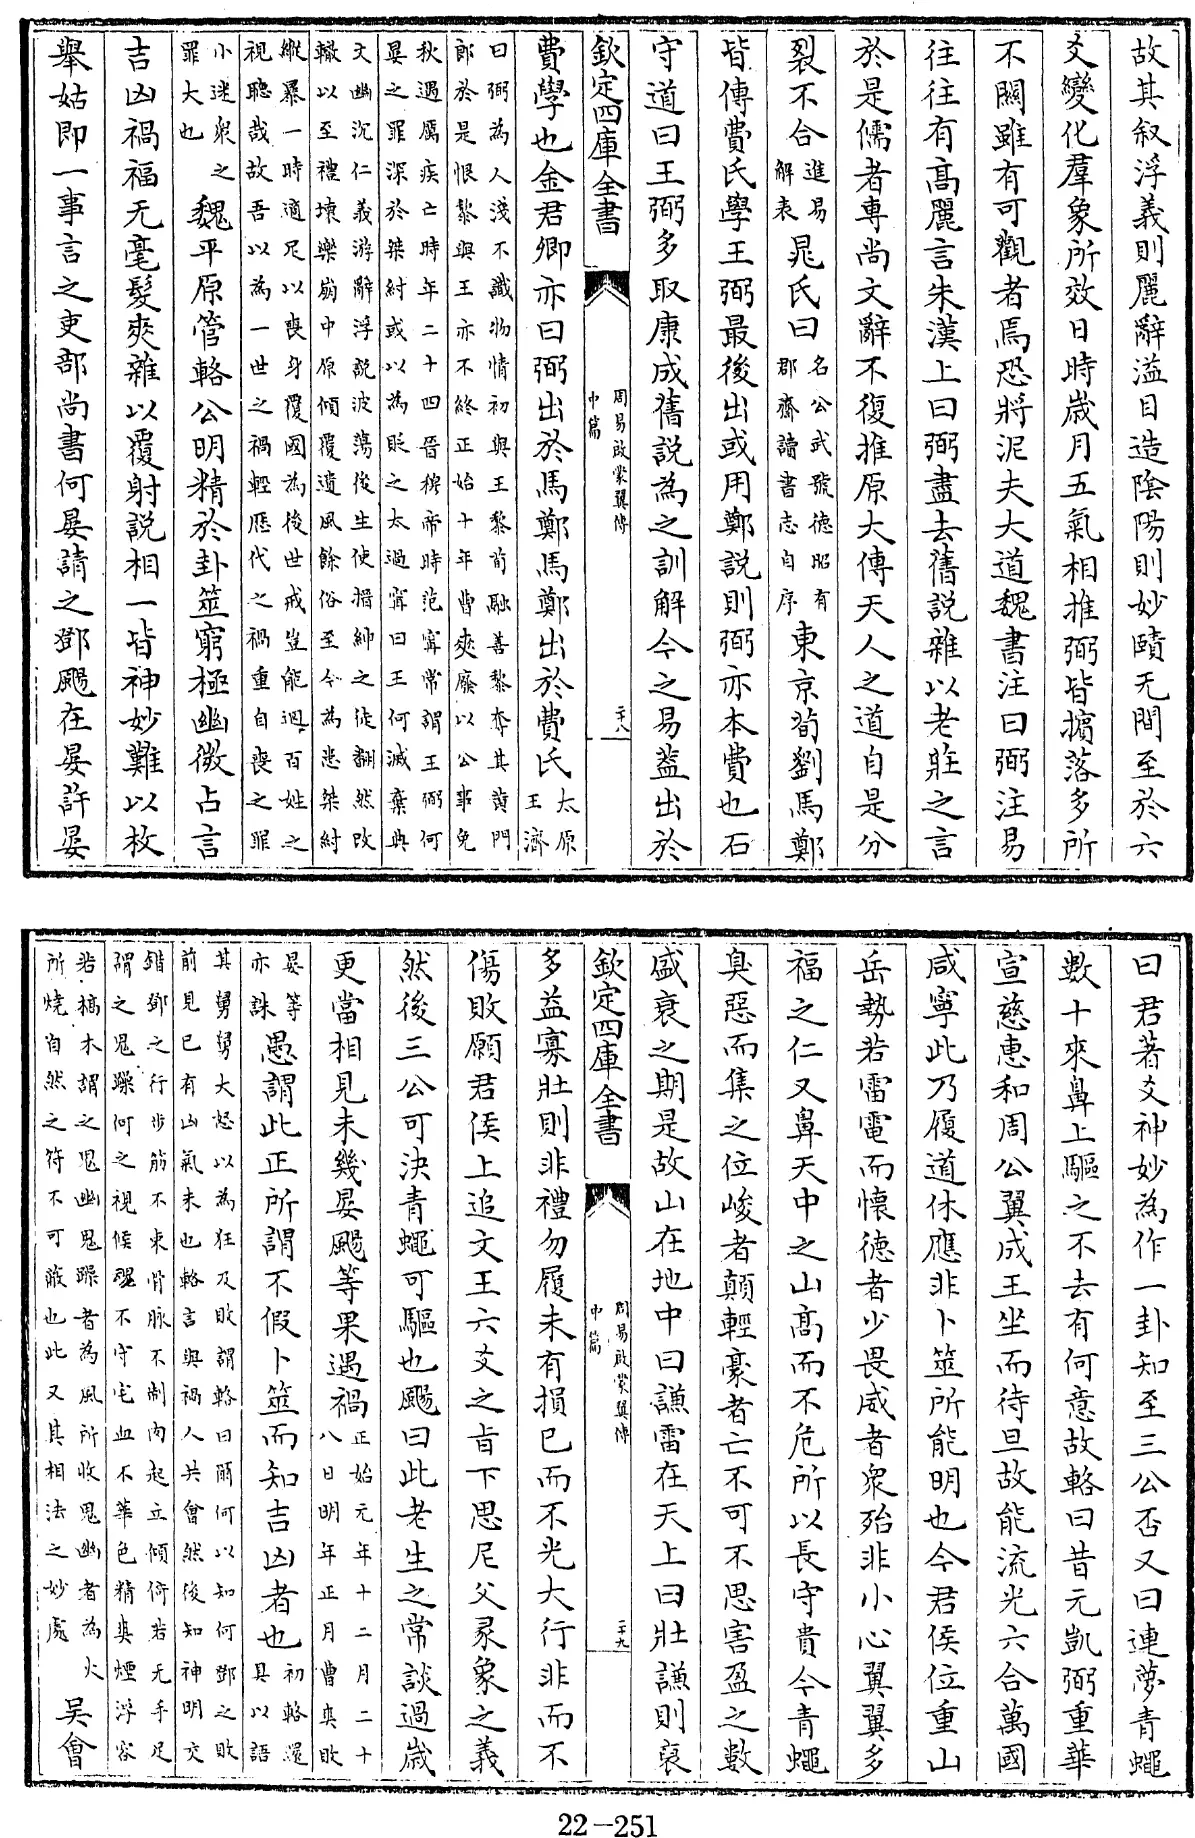 故其叙浮義則麗辭溢目造陰陽則妙賾无間至於六
爻變化羣象所效日時歳月五氣相推弼皆擯落多所
不關雖有可觀者焉恐將泥夫大道魏書注曰弼注易
往往有髙麗言朱漢上曰弼盡去舊説雜以老莊之言
於是儒者專尚文辭不復推原大傳天人之道自是分
裂不合進易解表晁氏曰名公武號德昭有郡齋讀書志自序東京荀劉馬鄭
皆傳費氏學王弼最後出或用鄭説則弼亦本費也石
守道曰王弼多取康成舊説為之訓解今之易葢出於
欽定四庫全書
周易啟蒙翼傳
中篇
二十八
費學也金君卿亦曰弼出於馬鄭馬鄭出於費氏太原王濟
曰弼為人淺不識物情初與王黎荀融善黎奪其黄門
郎於是恨黎與王亦不終正始十年曹爽廢以公事免
秋遇厲疾亡時年二十四晉穆帝時范甯常謂王弼何
晏之罪深於桀紂或以為貶之太過甯曰王何滅棄典
文幽沉仁義游辭浮説波蕩後生使搢紳之徒翻然改
轍以至禮壊樂崩中原傾覆遺風餘俗至今為患桀紂
縱暴一時適足以喪身覆國為後世戒豈能迴百姓之
視聽哉故吾以為一世之禍輕歴代之禍重自喪之罪
小迷衆之罪大也魏平原管輅公明精於卦筮窮極幽微占言
吉凶禍福无毫髮爽雜以覆射説相一皆神妙難以枚
舉姑即一事言之吏部尚書何晏請之鄧颺在晏許晏
曰君著爻神妙為作一卦知至三公否又曰連夢青蠅
數十來鼻上驅之不去有何意故輅曰昔元凱弼重華
宣慈惠和周公翼成王坐而待旦故能流光六合萬國
咸寧此乃履道休應非卜筮所能明也今君侯位重山
岳勢若雷電而懷德者少畏威者衆殆非小心翼翼多
福之仁又鼻天中之山髙而不危所以長守貴今青蠅
臭惡而集之位峻者顛輕豪者亡不可不思害盈之數
盛衰之期是故山在地中曰謙雷在天上曰壯謙則裒
欽定四庫全書
周易啟蒙翼傳
中篇
二十九
多益寡壯則非禮勿履未有損已而不光大行非而不
傷敗願君侯上追文王六爻之旨下思尼父彖象之義
然後三公可決青蠅可驅也颺曰此老生之常談過歳
更當相見未幾晏颺等果遇禍正始元年十二月二十八日明年正月曹爽敗
晏等亦誅愚謂此正所謂不假卜筮而知吉凶者也初輅還具以語
其舅舅大怒以為狂及敗謂輅曰爾何以知何鄧之敗
前見已有凶氣未也輅言與禍人共會然後知神明交
錯鄧之行步筋不束骨脉不制肉起立傾倚若无手足
謂之鬼躁何之視候魂不守宅血不華色精爽煙浮容
若槁木謂之鬼幽鬼躁者為風所收鬼幽者為火
所燒自然之符不可蔽也此又其相法之妙處吴會
22-251